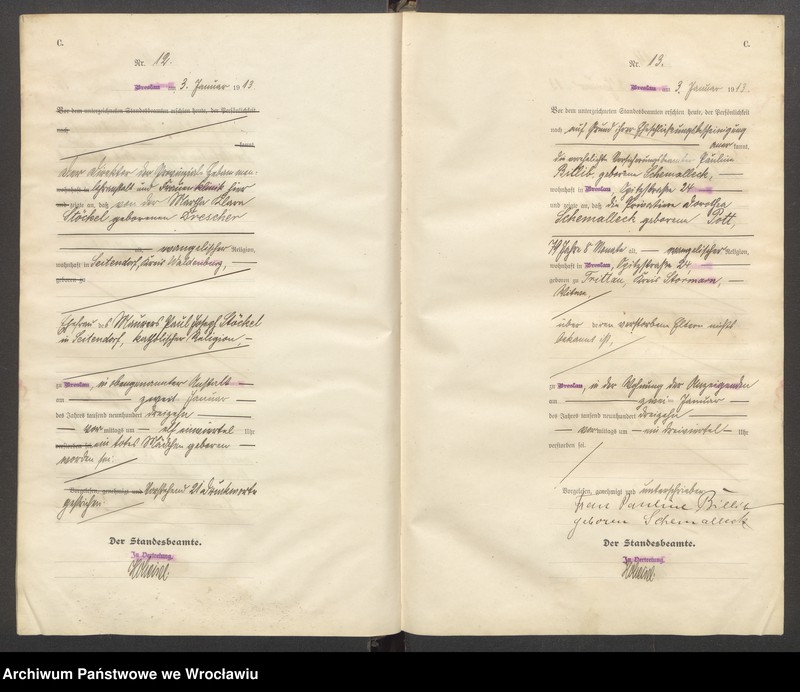 C.
Nr. 12.
Breslau am 3. Januar 1913
Vor dem unterzeichneten Standesbeamten erschien heute, der Persönlichkeit
nach
kannt,
Der Direktor der Provinzial-Hebammen-
wohnhaft in Lehranstalt und Frauenklinik hier
und zeigte an, daß von der Martha Klara
Stöckel geborenen Drescher
alt, evangelischer Religion,
wohnhaft in Seitendorf, Kreis Waldenburg,
geboren zu
Ehefrau des Maurers Paul Joseph Stöckel
in Seitendorf, katholischer Religion,
zu Breslau, in obengenannter Anstalt
am zweiten Januar
des Jahres tausend neunhundert dreizehn
vormittags um elf einviertel Uhr
verstorben sei ein totes Mädchen geboren
worden sei.
Vorgelesen, genehmigt und Vorstehend 21 Druckworte
gestrichen.
Der Standesbeamte.
In Vertretung.
C.
Nr. 13.
Breslau am 3. Januar 1913.
Vor dem unterzeichneten Standesbeamten erschien heute, der Persönlichkeit
nach auf Grund ihrer Eheschließungsbescheinigung
anerkannt,
die verehelichte Versicherungsbeamte Pauline
Billit, geborene Schemalleck,
wohnhaft in Breslau, Opitzstraße 24
und zeigte an, daß die Privatiere Dorothea
Schemalleck geborene Pott,
74 Jahre 8 Monate alt, evangelischer Religion,
wohnhaft in Breslau, Opitzstraße 24
geboren zu Trittau, Kreis Stormarn,
Witwe,
über deren verstorbene Eltern nichts
bekannt ist,
zu Breslau, in der Wohnung der Anzeigenden
am zwei Januar
des Jahres tausend neunhundert dreizehn
vormittags um ein dreiviertel Uhr
verstorben sei.
Vorgelesen, genehmigt und unterschrieben
Frau Pauline Billit
geboren Schemalleck
Der Standesbeamte.
In Vertretung.
Archiwum Państwowe we Wrocławiu